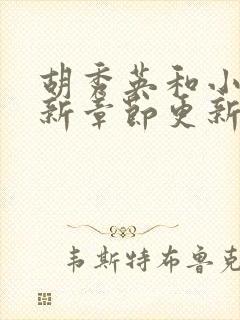 胡秀英和小
新章節更新
韦斯特布鲁克